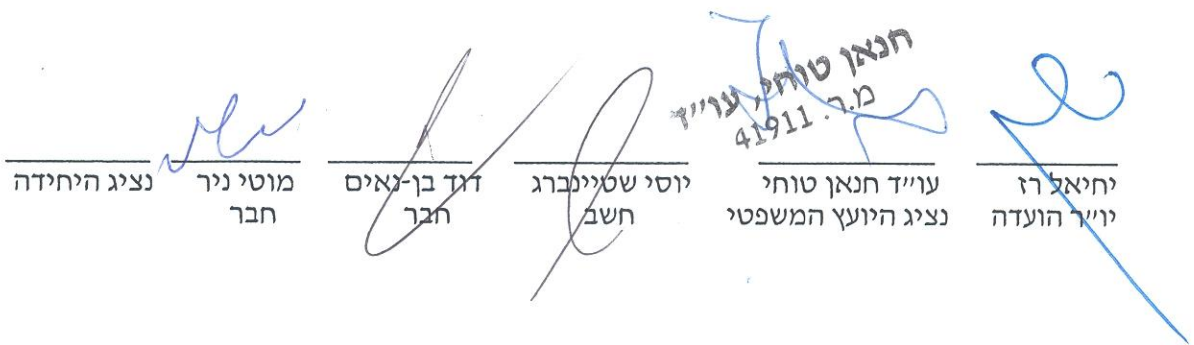 חנאן טוחי, עו״ד
מ.ר. 41911
יחיאל רז
יו״ר הועדה
עו״ד חנאן טוחי
נציג היועץ המשפטי
יוסי שטיינברג
חשב
דוד בן-נאים
חבר
מוטי ניר
חבר
נציג היחידה